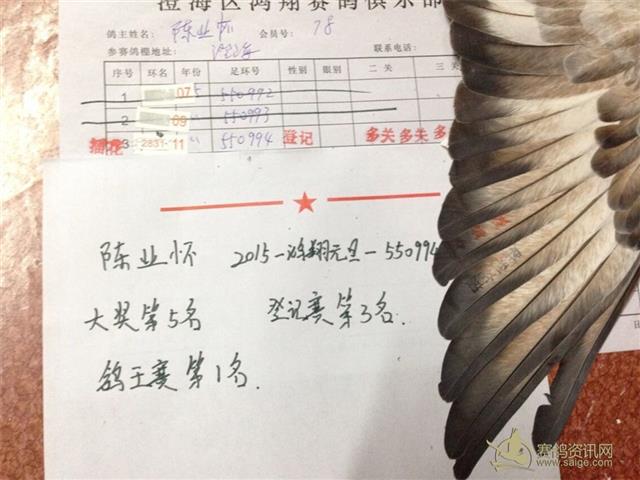 澄海区鸿翔赛鸽俱乐部
鸽主姓名: 陈业怀 会员号: 78
参赛鸽棚地址: 澄海 联系电话:
序号 环名 年份 足环号 性别 眼别 二关 三关
1 07 5 550992
2 09 〃 550993
3 2831-11 〃 550994 登记 多关 多关 多
陈业怀 2015-鸿翔元旦-550994
大奖第5名 登记赛第3名.
鸽王赛第1名.
赛鸽资讯网
www.saige.com